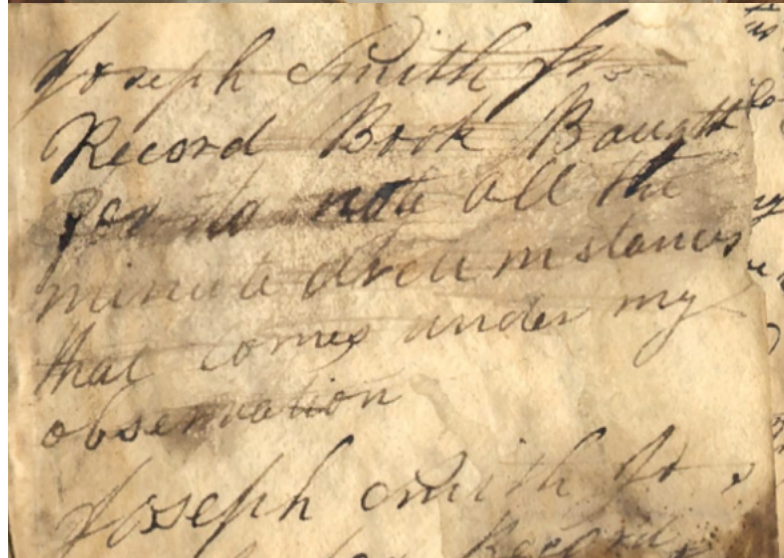 Joseph Smith Jr.
Record Book Baught
for to note all the
minute circumstances
that comes under my
observation
Joseph Smith Jrs
Record